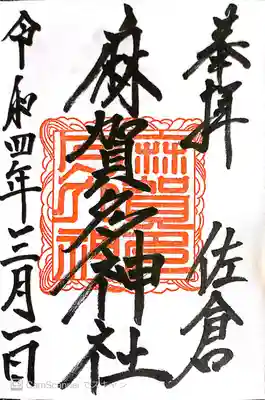 奉拝　佐倉
麻賀多神社
令和四年三月一日
CamScanner でスキャン